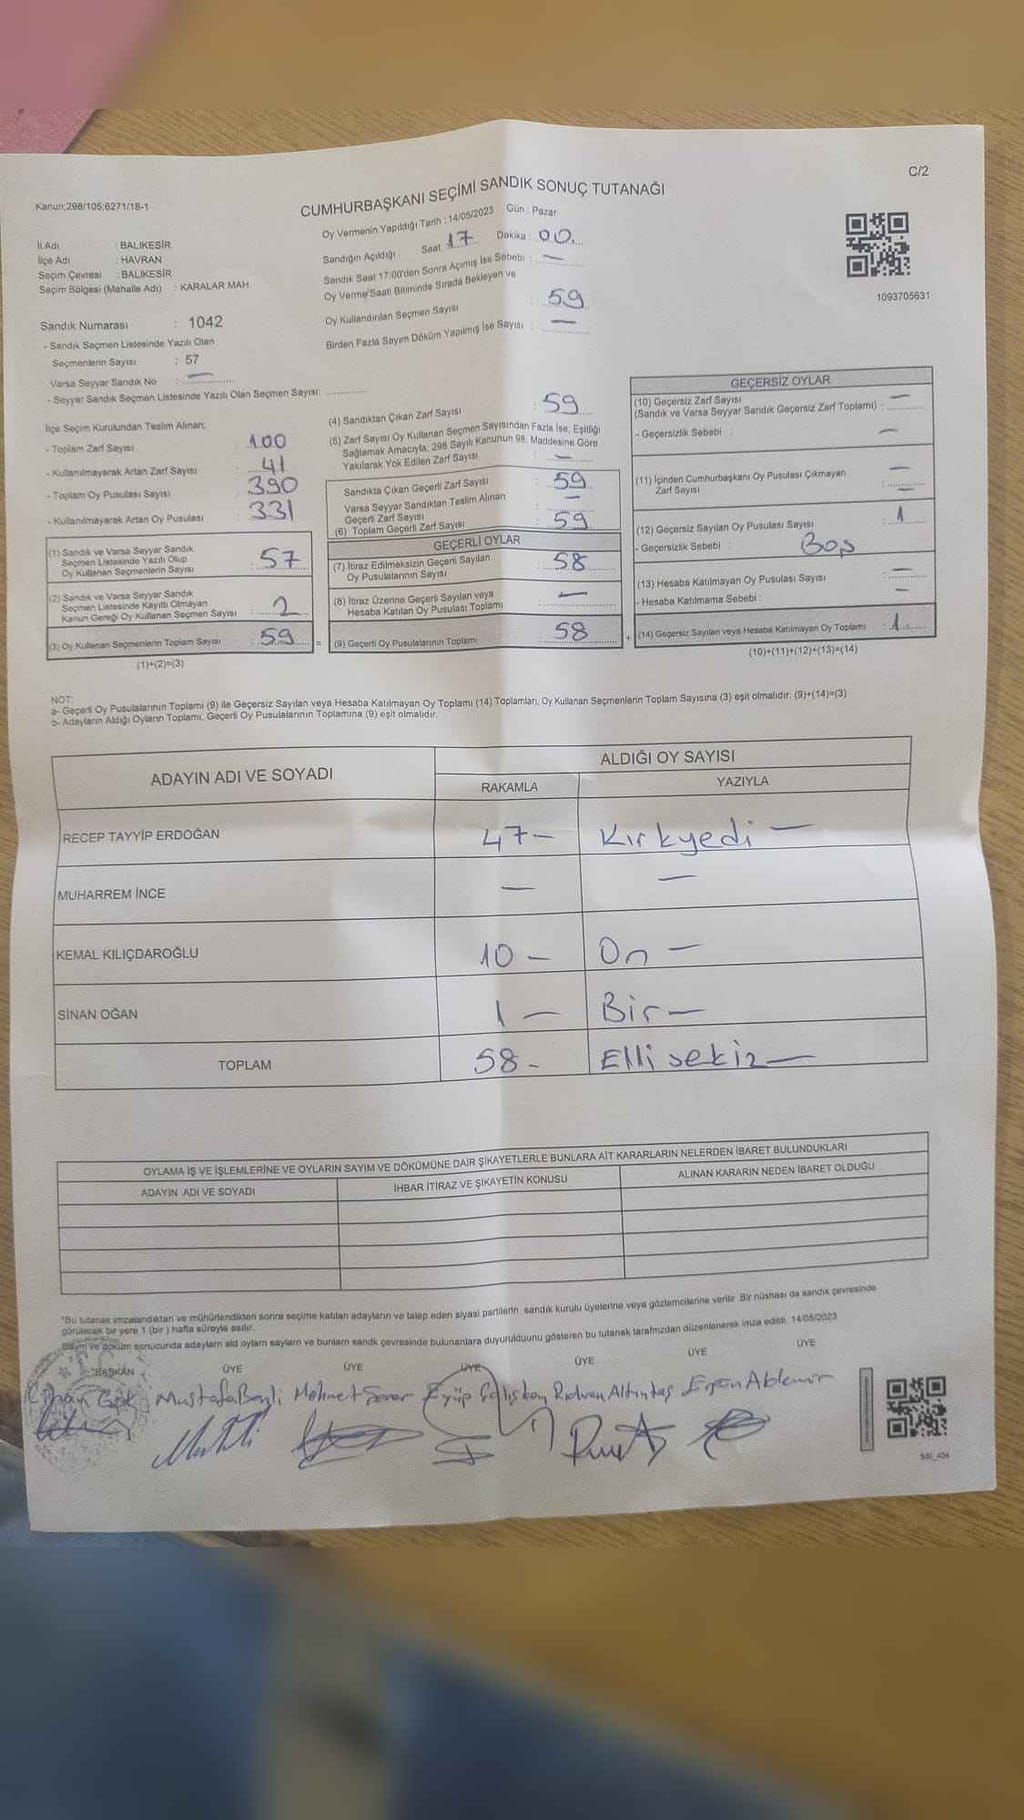 C/2
Kanun;298/105;6271/18-1
CUMHURBAŞKANI SEÇİMİ SANDIK SONUÇ TUTANAĞI
Oy Vermenin Yapıldığı Tarih : 14/05/2023 Gün : Pazar
İl Adı : BALIKESİR
İlçe Adı : HAVRAN
Seçim Çevresi : BALIKESİR
Seçim Bölgesi (Mahalle Adı) : KARALAR MAH.
Sandığın Açıldığı Saat 17 Dakika : 00.
Sandık Saat 17:00'den Sonra Açımış İse Sebebi : —
Oy Verme Saati Bitiminde Sırada Bekleyen ve
Oy Kullandırılan Seçmen Sayısı : 59
Birden Fazla Sayım Döküm Yapılmış İse Sayısı : —
1093705631
Sandık Numarası : 1042
- Sandık Seçmen Listesinde Yazılı Olan
Seçmenlerin Sayısı : 57
Varsa Seyyar Sandık No : —
- Seyyar Sandık Seçmen Listesinde Yazılı Olan Seçmen Sayısı:
İlçe Seçim Kurulundan Teslim Alınan:
- Toplam Zarf Sayısı : 100
- Kullanılmayarak Artan Zarf Sayısı : 41
- Toplam Oy Pusulası Sayısı : 390
- Kullanılmayarak Artan Oy Pusulası : 331
(1) Sandık ve Varsa Seyyar Sandık
Seçmen Listesinde Yazılı Olup
Oy Kullanan Seçmenlerin Sayısı : 57
(2) Sandık ve Varsa Seyyar Sandık
Seçmen Listesinde Kayıtlı Olmayan
Kanun Gereği Oy Kullanan Seçmen Sayısı : 2
(3) Oy Kullanan Seçmenlerin Toplam Sayısı : 59 =
(1)+(2)=(3)
(4) Sandıktan Çıkan Zarf Sayısı : 59
(5) Zarf Sayısı Oy Kullanan Seçmen Sayısından Fazla İse, Eşitliği
Sağlamak Amacıyla; 298 Sayılı Kanunun 98. Maddesine Göre
Yakılarak Yok Edilen Zarf Sayısı : —
Sandıkta Çıkan Geçerli Zarf Sayısı : 59
Varsa Seyyar Sandıktan Teslim Alınan
Geçerli Zarf Sayısı : —
(6) Toplam Geçerli Zarf Sayısı : 59
GEÇERLİ OYLAR
(7) İtiraz Edilmeksizin Geçerli Sayılan
Oy Pusulalarının Sayısı : 58
(8) İtiraz Üzerine Geçerli Sayılan veya
Hesaba Katılan Oy Pusulası Toplamı : —
(9) Geçerli Oy Pusulalarının Toplamı : 58 +
GEÇERSİZ OYLAR
(10) Geçersiz Zarf Sayısı
(Sandık ve Varsa Seyyar Sandık Geçersiz Zarf Toplamı) : —
- Geçersizlik Sebebi : —
(11) İçinden Cumhurbaşkanı Oy Pusulası Çıkmayan
Zarf Sayısı : —
(12) Geçersiz Sayılan Oy Pusulası Sayısı : 1
- Geçersizlik Sebebi : Boş
(13) Hesaba Katılmayan Oy Pusulası Sayısı : —
- Hesaba Katılmama Sebebi : —
(14) Geçersiz Sayılan veya Hesaba Katılmayan Oy Toplamı : 1
(10)+(11)+(12)+(13)=(14)
NOT:
a- Geçerli Oy Pusulalarının Toplamı (9) ile Geçersiz Sayılan veya Hesaba Katılmayan Oy Toplamı (14) Toplamları, Oy Kullanan Seçmenlerin Toplam Sayısına (3) eşit olmalıdır. (9)+(14)=(3)
b- Adayların Aldığı Oyların Toplamı, Geçerli Oy Pusulalarının Toplamına (9) eşit olmalıdır.
ADAYIN ADI VE SOYADI
ALDIĞI OY SAYISI
RAKAMLA YAZIYLA
RECEP TAYYİP ERDOĞAN 47 — Kırkyedi —
MUHARREM İNCE — —
KEMAL KILIÇDAROĞLU 10 — On —
SİNAN OĞAN 1 — Bir —
TOPLAM 58 - Elli sekiz —
OYLAMA İŞ VE İŞLEMLERİNE VE OYLARIN SAYIM VE DÖKÜMÜNE DAİR ŞİKAYETLERLE BUNLARA AİT KARARLARIN NELERDEN İBARET BULUNDUKLARI
ADAYIN ADI VE SOYADI İHBAR İTİRAZ VE ŞİKAYETİN KONUSU ALINAN KARARIN NEDEN İBARET OLDUĞU
*Bu tutanak imzalandıktan ve mühürlendikten sonra seçime katılan adayların ve talep eden siyasi partilerin sandık kurulu üyelerine veya gözlemcilerine verilir. Bir nüshası da sandık çevresinde
görülecek bir yere 1 (bir) hafta süreyle asılır.
Sayım ve döküm sonucunda adayların aldı oyların sayların ve bunların sandık çevresinde bulunanlara duyurulduunu gösteren bu tutanak tarafımızdan düzenlenerek imza edildi. 14/05/2023
BAŞKAN ÜYE ÜYE ÜYE ÜYE ÜYE ÜYE
Gök Mustafa Mehmet Eyüp Çalışkan Rıdvan Altıntaş